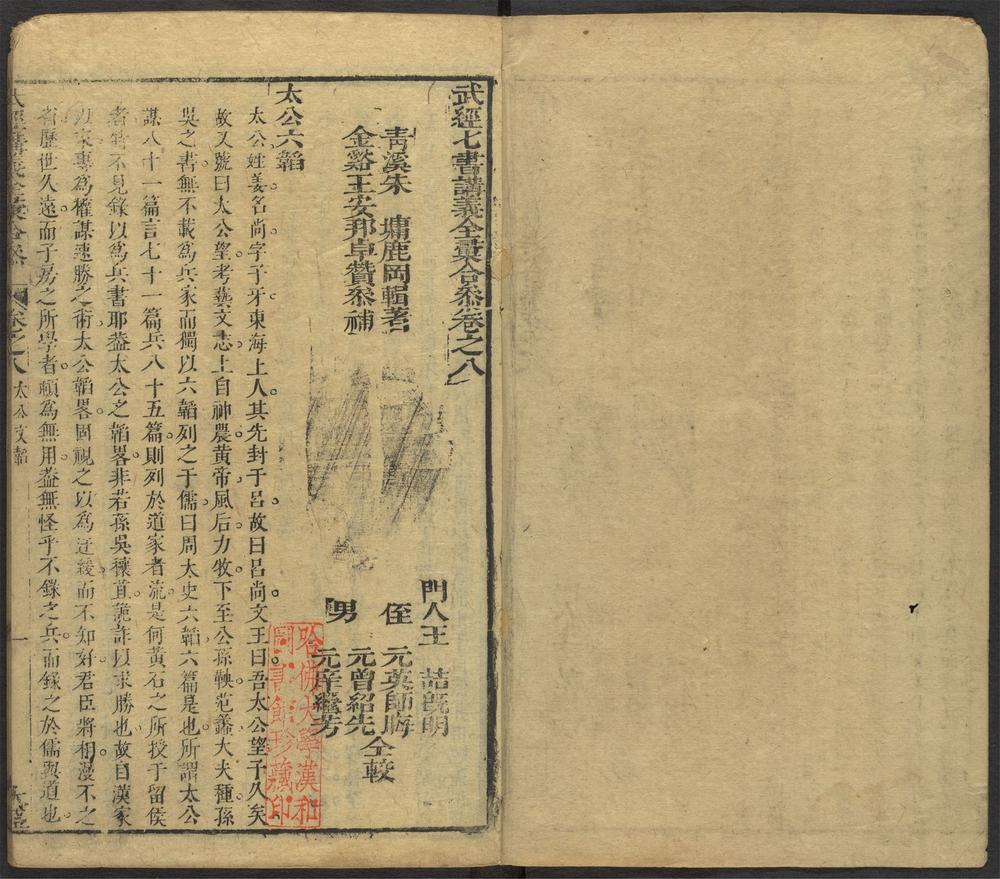 武經七書講義全彙合叅卷之八
青溪朱 墉鹿岡輯著
金谿王安邦卓贊叅補
門人王 喆旣明
侄 元英師晦
元曾紹先
男 元宰繼芳
仝較
太公六韜
太公姓姜名尚字子牙東海上人其先封于呂故曰呂尚文王曰吾太公望子久矣
故又號曰太公望考藝文志上自神農黄帝風后力牧下至公孫鞅范蠡大夫種孫
吳之書無不載爲兵家而獨以六韜列之于儒曰周大史六韜六篇是也所謂太公
謀八十一篇言七十一篇兵八十五篇則列於道家者流是何黃石之所授于留侯
者皆不見錄以爲兵書耶葢太公之韜畧非若孫吳穰苴詭詐以求勝也故自漢家
以來專爲權謀速勝之術太公韜畧固視之以爲迂緩而不知好君臣將相漫不之
省歷世久遠而子房之所學者頓爲無用葢無怪乎不錄之兵而錄之於儒與道也
武經講義全彙合叅
卷之八
太公文韜
一
哈佛大學漢和
圖書館珍藏印